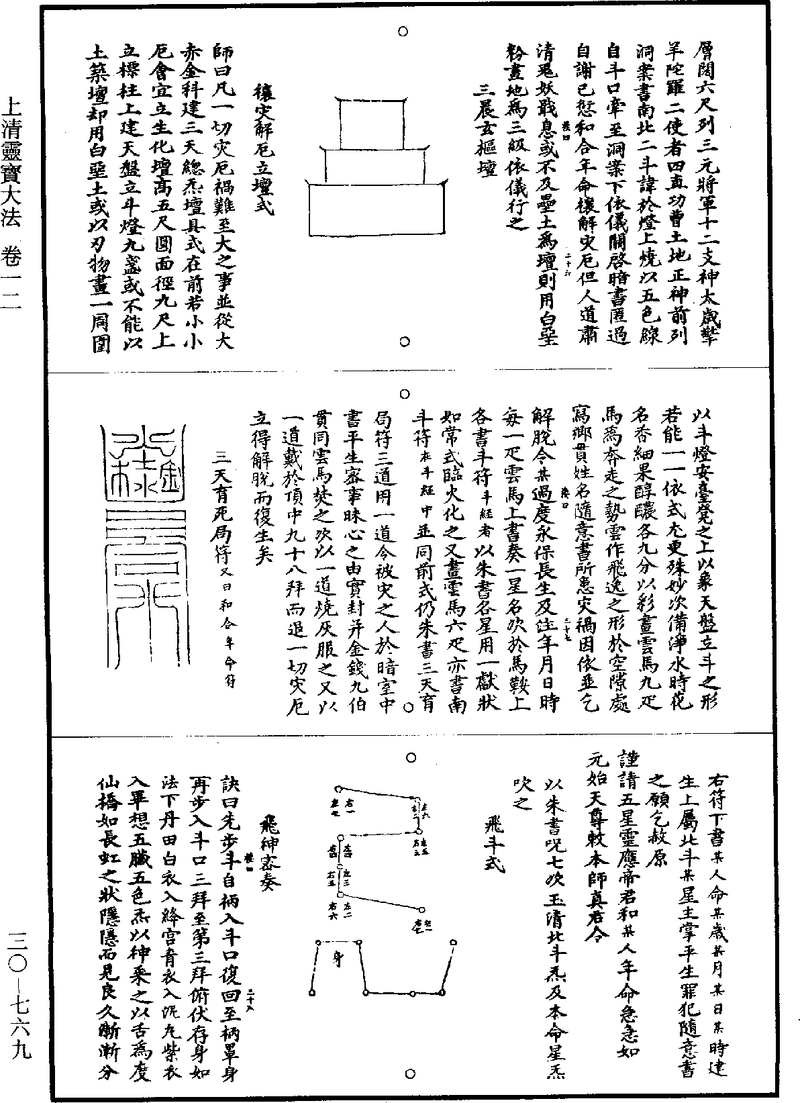 上清靈寶大法 卷一二
三〇—七六九
層闊六尺列三元將軍十二支神太歲擎
羊陀羅二使者四直功曹土地正神前列
洞案書南北二斗諱於燈上燒以五色線
自斗口牽至洞案下依儀關啓暗書匿過
自謝已愆和合年命禳解災厄但人道肅
清鬼妖戢息或不及壘土為壇則用白堊
粉畫地為三級依儀行之
三晨玄樞壇
禳災解厄立壇式
師曰凡一切災厄禍難至大之事並從大
赤金科建三天總炁壇具式在前若小小
厄會宜立生化壇高五尺圓面徑九尺上
立標柱上建天盤立斗燈九盞或不能以
土築壇却用白堊土或以刃物畫一周圍
以斗燈安臺凳之上以象天盤立斗之形
若能一一依式尤更殊妙次備淨水時花
名香細果醇醲各九分以彩畫雲馬九疋
馬為奔走之勢雲作飛逸之形於空隙處
寫鄉貫姓名隨意書所患災禍因依並乞
解脫令某過度永保長生及注年月日時
每一疋雲馬上書奏一星名次於馬鞍上
各書斗符斗經者以朱書各星用一獻狀
如常式臨火化之又畫雲馬六疋亦書南
斗符在斗經中並同前式仍朱書三天育
局符三道用一道令被災之人於暗室中
書平生審事昧心之由實封并金錢九伯
貫同雲馬焚之次以一道燒灰服之又以
一道戴於頂中九十八拜而退一切災厄
立得解脫而復生矣
三天育死局符又曰和合年命符
右符下書某人命某歲某月某日某時建
生上屬北斗某星主掌平生罪犯隨意書
之願乞赦原
謹請五星靈應帝君和某人年命急急如
元始天尊敕本師真君令
以朱書呪七次玉清北斗炁及本命星炁
吹之
飛斗式
身
飛神密奏
訣曰先步斗自柄入斗口復回至柄罩身
再步入斗口三拜至第三拜俯伏存身如
法下丹田白衣入絳宮青衣入泥丸紫衣
入畢想五臟五色炁以神乘之以舌為度
仙橋如長虹之狀隱隱而見良久漸漸分